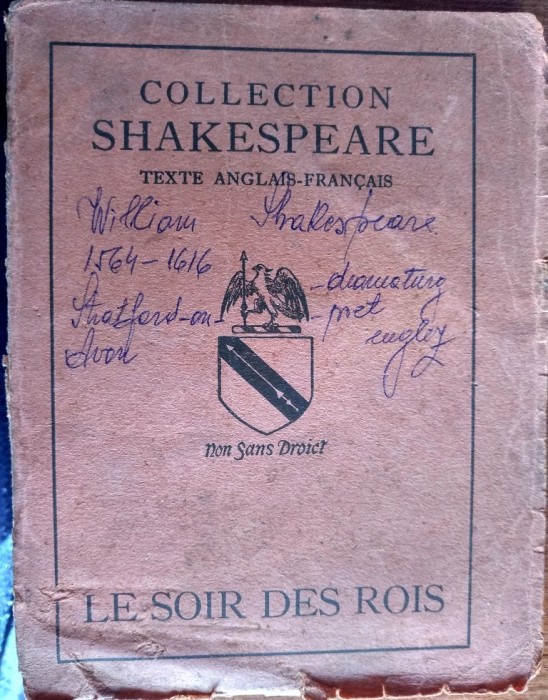 COLLECTION
SHAKESPEARE
TEXTE ANGLAIS-FRANÇAIS
William Shakespeare
1564-1616
- dramaturg
Stratford-on-
Avon
- poet
englez
Non Sans Droict
LE SOIR DES ROIS